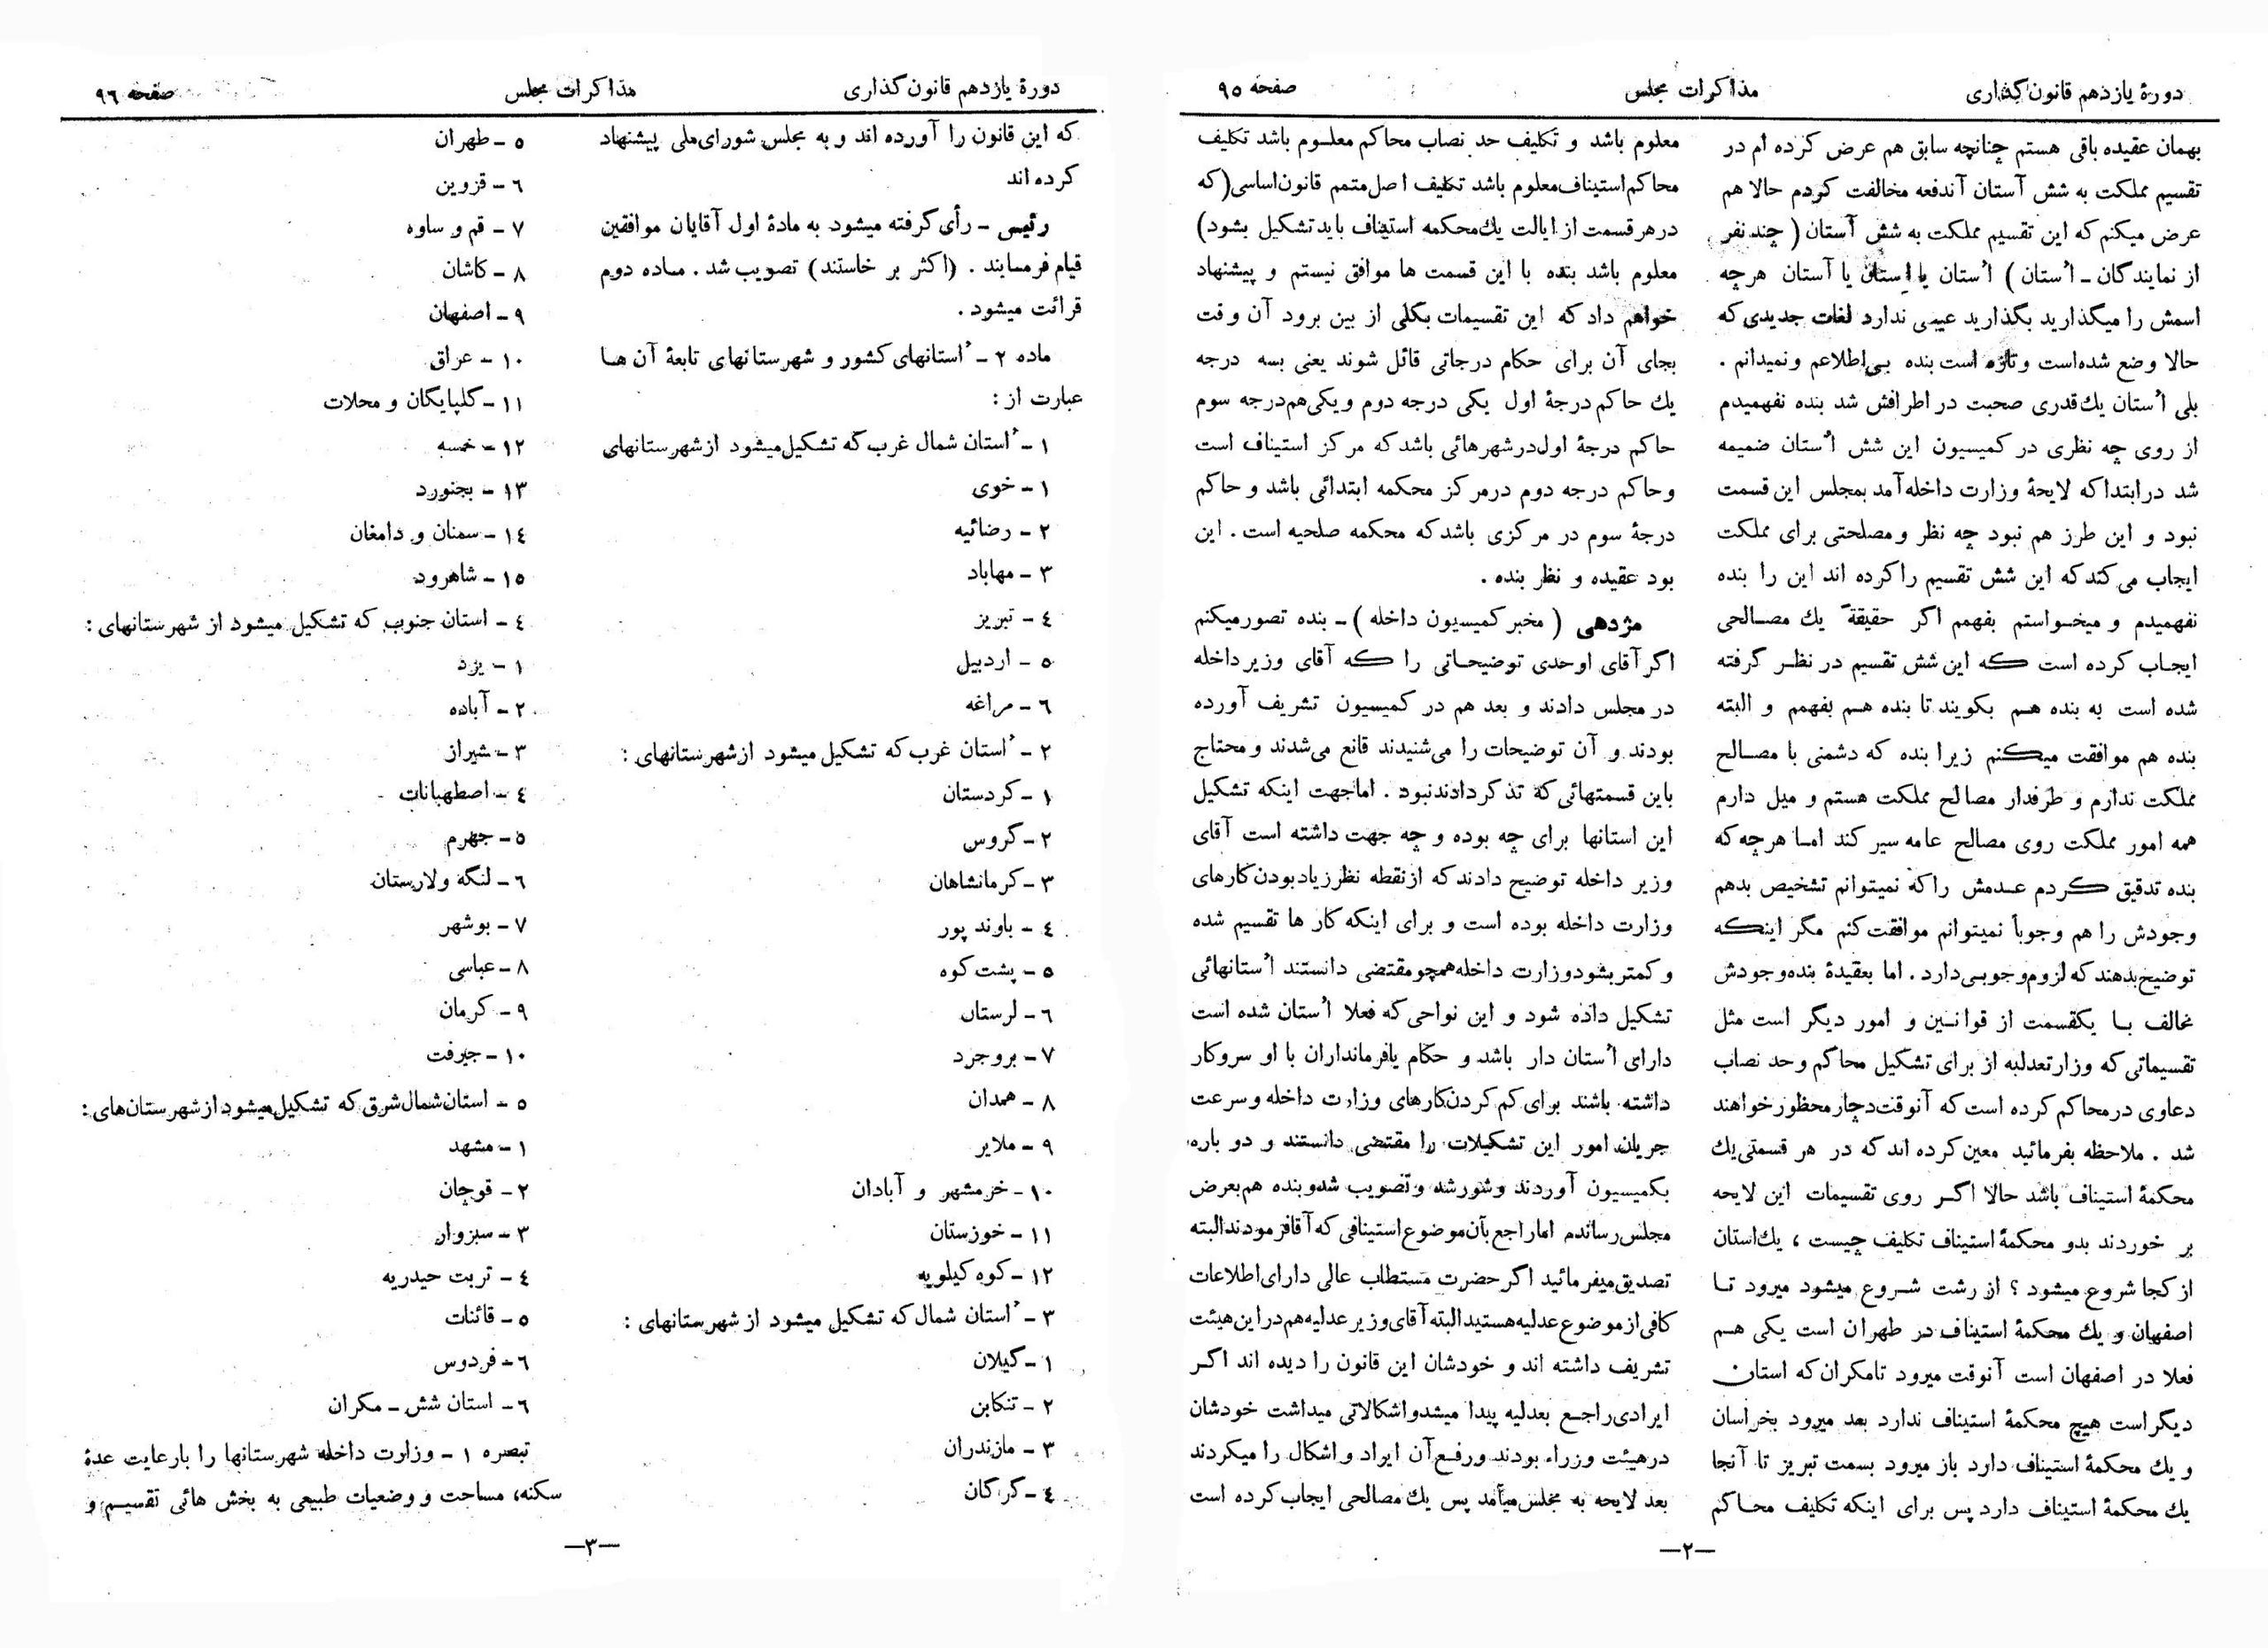 دورهٔ یازدهم قانون‌گذاری
مذاکرات مجلس
صفحه ۹۵
بهمان عقیده باقی هستم چنانچه سابق هم عرض کرده ام در
تقسیم مملکت به شش آستان آندفعه مخالفت کردم حالا هم
عرض میکنم که این تقسیم مملکت به شش آستان ( چند نفر
از نمایندگان ـ اُستان ) اُستان یا اِستان یا آستان هرچه
اسمش را میگذارید بگذارید عیبی ندارد لغات جدیدی که
حالا وضع شده‌است و تازه است بنده بی‌اطلاعم و نمیدانم .
بلی اُستان یك قدری صحبت در اطرافش شد بنده نفهمیدم
از روی چه نظری در کمیسیون این شش اُستان ضمیمه
شد در ابتدا که لایحهٔ وزارت داخله آمد بمجلس این قسمت
نبود و این طرز هم نبود چه نظر و مصلحتی برای مملکت
ایجاب می‌کند که این شش تقسیم را کرده اند این را بنده
نفهمیدم و میخواستم بفهمم اگر حقیقةً یك مصالحی
ایجاب کرده است که این شش تقسیم در نظر گرفته
شده است به بنده هم بگویند تا بنده هم بفهمم و البته
بنده هم موافقت میکنم زیرا بنده که دشمنی با مصالح
مملکت ندارم و طرفدار مصالح مملکت هستم و میل دارم
همه امور مملکت روی مصالح عامه سیر کند اما هرچه که
بنده تدقیق کردم عدمش را که نمیتوانم تشخیص بدهم
وجودش را هم وجوباً نمیتوانم موافقت کنم مگر اینکه
توضیح بدهند که لزوم وجوبی دارد . اما بعقیدهٔ بنده وجودش
مخالف با یکقسمت از قوانین و امور دیگر است مثل
تقسیماتی که وزارتعدلیه از برای تشکیل محاکم وحد نصاب
دعاوی در محاکم کرده است که آنوقت دچار محظور خواهند
شد . ملاحظه بفرمائید معین کرده اند که در هر قسمتی یك
محکمهٔ استیناف باشد حالا اگر روی تقسیمات این لایحه
بر خوردند بدو محکمهٔ استیناف تکلیف چیست ، یك استان
از کجا شروع میشود ؟ از رشت شروع میشود میرود تا
اصفهان و یك محکمهٔ استیناف در طهران است یکی هم
فعلا در اصفهان است آنوقت میرود تا مکران که استان
دیگر است هیچ محکمهٔ استیناف ندارد بعد میرود بخراسان
و یك محکمهٔ استیناف دارد باز میرود بسمت تبریز تا آنجا
یك محکمهٔ استیناف دارد پس برای اینکه تکلیف محاکم
معلوم باشد و تکلیف حد نصاب محاکم معلوم باشد تکلیف
محاکم استیناف معلوم باشد تکلیف اصل متمم قانون اساسی (که
در هر قسمت از ایالت یك محکمه استیناف باید تشکیل بشود)
معلوم باشد بنده با این قسمت ها موافق نیستم و پیشنهاد
خواهم داد که این تقسیمات بکلی از بین برود آن وقت
بجای آن برای حکام درجاتی قائل شوند یعنی بسه درجه
یك حاکم درجهٔ اول یکی درجه دوم و یکی هم درجه سوم
حاکم درجهٔ اول در شهرهائی باشد که مرکز استیناف است
و حاکم درجه دوم در مرکز محکمه ابتدائی باشد و حاکم
درجهٔ سوم در مرکزی باشد که محکمه صلحیه است . این
بود عقیده و نظر بنده .
مژدهی ( مخبر کمیسیون داخله ) ـ بنده تصور میکنم
اگر آقای اوحدی توضیحاتی را که آقای وزیر داخله
در مجلس دادند و بعد هم در کمیسیون تشریف آورده
بودند و آن توضیحات را می‌شنیدند قانع می‌شدند و محتاج
باین قسمتهائی که تذکر دادند نبود . اما جهت اینکه تشکیل
این استانها برای چه بوده و چه جهت داشته است آقای
وزیر داخله توضیح دادند که از نقطه نظر زیاد بودن کارهای
وزارت داخله بوده است و برای اینکه کار ها تقسیم شده
و کمتر بشود وزارت داخله همچو مقتضی دانستند اُستانهائی
تشکیل داده شود و این نواحی که فعلا اُستان شده است
دارای اُستان دار باشد و حکام یا فرمانداران با او سروکار
داشته باشند برای کم کردن کارهای وزارت داخله و سرعت
جریان امور این تشکیلات را مقتضی دانستند و دو باره
بکمیسیون آوردند و شور شد و تصویب شد و بنده هم بعرض
مجلس رساندم اما راجع بآن موضوع استینافی که آقا فرمودند البته
تصدیق میفرمائید اگر حضرت مستطاب عالی دارای اطلاعات
کافی از موضوع عدلیه هستید البته آقای وزیر عدلیه هم در این هیئت
تشریف داشته اند و خودشان این قانون را دیده اند اگر
ایرادی راجع بعدلیه پیدا میشد و اشکالاتی میداشت خودشان
در هیئت وزراء بودند و رفع آن ایراد و اشکال را میکردند
بعد لایحه به مجلس میآمد پس یك مصالحی ایجاب کرده است
—۲—
دورهٔ یازدهم قانون گذاری
مذاکرات مجلس
صفحه ۹۶
که این قانون را آورده اند و به مجلس شورای ملی پیشنهاد
کرده اند
رئیس ـ رأی گرفته میشود به مادهٔ اول آقایان موافقین
قیام فرمایند . (اکثر بر خاستند) تصویب شد . ماده دوم
قرائت میشود .
ماده ۲ ـ اُستانهای کشور و شهرستانهای تابعهٔ آن ها
عبارت از :
۱ ـ اُستان شمال غرب که تشکیل میشود از شهرستانهای
۱ ـ خوی
۲ ـ رضائیه
۳ ـ مهاباد
٤ ـ تبریز
٥ ـ اردبیل
٦ ـ مراغه
۲ ـ اُستان غرب که تشکیل میشود از شهرستانهای :
۱ ـ کردستان
۲ ـ گروس
۳ ـ کرمانشاهان
٤ ـ باوند پور
٥ ـ پشت کوه
٦ ـ لرستان
۷ ـ بروجرد
۸ ـ همدان
۹ ـ ملایر
۱۰ ـ خرمشهر و آبادان
۱۱ ـ خوزستان
۱۲ ـ کوه کیلویه
۳ ـ اُستان شمال که تشکیل میشود از شهرستانهای :
۱ ـ گیلان
۲ ـ تنکابن
۳ ـ مازندران
٤ ـ گرگان
٥ ـ طهران
٦ ـ قزوین
۷ ـ قم و ساوه
۸ ـ کاشان
۹ ـ اصفهان
۱۰ ـ عراق
۱۱ ـ گلپایگان و محلات
۱۲ ـ خمسه
۱۳ ـ بجنورد
۱٤ ـ سمنان و دامغان
۱٥ ـ شاهرود
٤ ـ استان جنوب که تشکیل میشود از شهرستانهای :
۱ ـ یزد
۲ ـ آباده
۳ ـ شیراز
٤ ـ اصطهبانات
٥ ـ جهرم
٦ ـ لنگه ولارستان
۷ ـ بوشهر
۸ ـ عباسی
۹ ـ کرمان
۱۰ ـ جیرفت
٥ ـ استان شمال شرق که تشکیل میشود از شهرستان‌های :
۱ ـ مشهد
۲ ـ قوچان
۳ ـ سبزوار
٤ ـ تربت حیدریه
٥ ـ قائنات
٦ ـ فردوس
٦ ـ استان شش ـ مکران
تبصره ۱ ـ وزارت داخله شهرستانها را بارعایت عدهٔ
سکنه، مساحت و وضعیات طبیعی به بخش هائی تقسیم و
—۳—